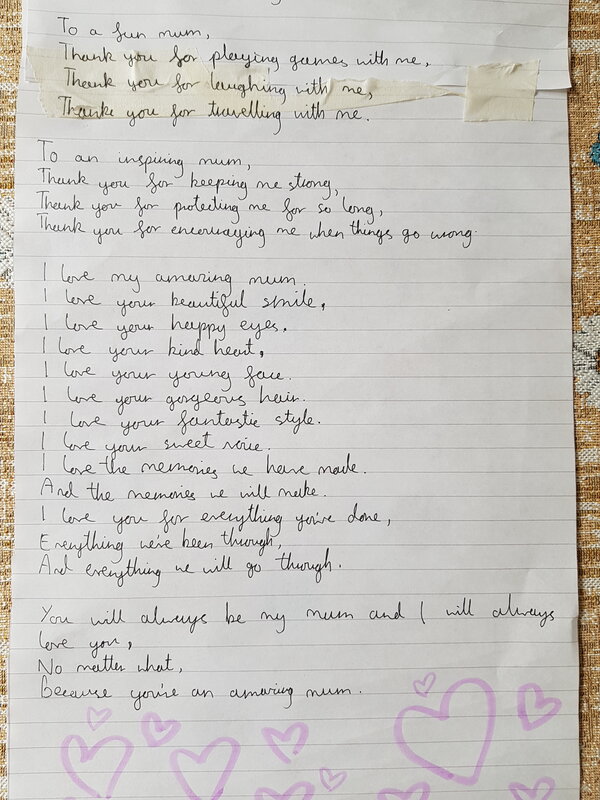 To a fun mum,
Thank you for playing games with me,
Thank you for laughing with me,
Thank you for travelling with me.
To an inspiring mum,
Thank you for keeping me strong,
Thank you for protecting me for so long,
Thank you for encouraging me when things go wrong.
I love my amazing mum.
I love your beautiful smile,
I love your happy eyes.
I love your kind heart,
I love your young face.
I love your gorgeous hair.
I love your fantastic style.
I love your sweet voice.
I love the memories we have made.
And the memories we will make.
I love you for everything you've done,
Everything we've been through,
And everything we will go through.
You will always be my mum and I will always
love you,
No matter what,
Because you're an amazing mum.